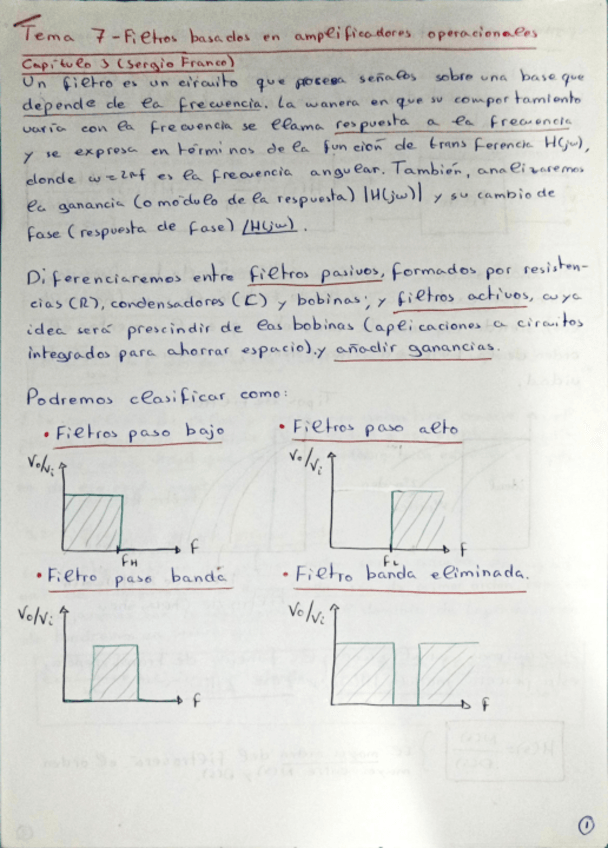 Tema 7 - Filtros basados en amplificadores operacionales
Capítulo 3 (Sergio Franco)
Un filtro es un circuito que procesa señales sobre una base que
depende de la frecuencia. La manera en que su comportamiento
varía con la frecuencia se llama respuesta a la frecuencia
y se expresa en términos de la función de transferencia H(jω),
donde ω = 2πf es la frecuencia angular. También, analizaremos
la ganancia (o módulo de la respuesta) |H(jω)| y su cambio de
fase (respuesta de fase) /H(jω).
Diferenciaremos entre filtros pasivos, formados por resisten-
cias (R), condensadores (C) y bobinas; y filtros activos, cuya
idea será prescindir de las bobinas (aplicaciones a circuitos
integrados para ahorrar espacio), y añadir ganancias.
Podremos clasificar como:
• Filtros paso bajo • Filtros paso alto
Vo/Vi Vo/Vi
fH f fL f
• Filtro paso banda • Filtro banda eliminada.
Vo/Vi Vo/Vi
f f
1